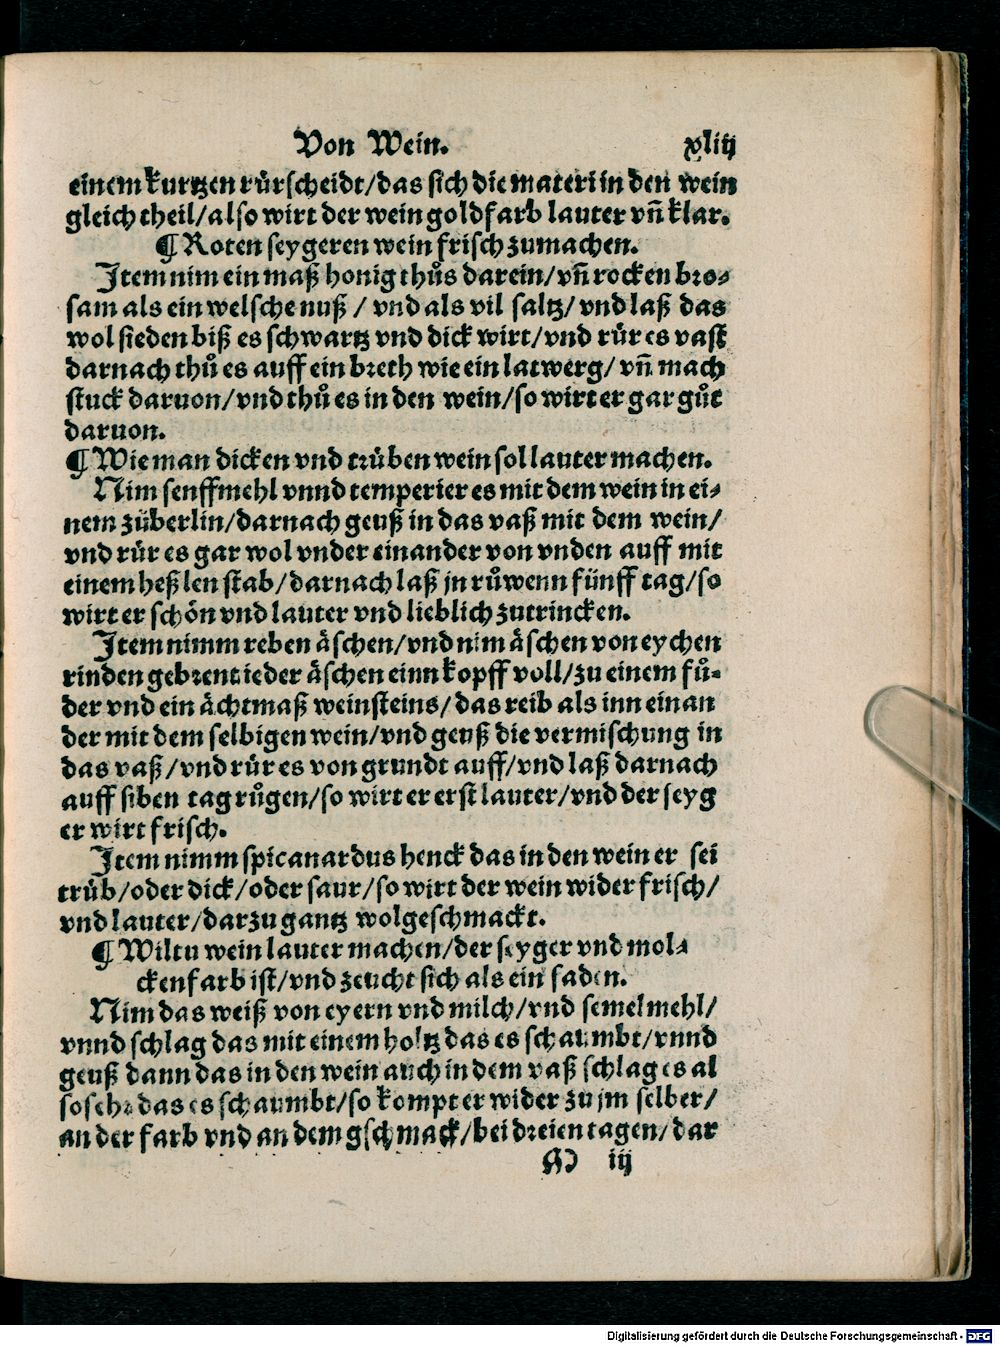 Von Wein. xliij
einem kurtzen rürscheidt/das sich die materi in den wein
gleich theil/also wirt der wein goldfarb lauter vñ klar.
¶ Roten seygeren wein frisch zumachen.
Item nim ein maß honig thůs darein/vñ rocken bro⸗
sam als ein welsche nuß / vnd als vil saltz/vnd laß das
wol sieden biß es schwartz vnd dick wirt/vnd rür es vast
darnach thů es auff ein breth wie ein latwerg/ vñ mach
stuck daruon/vnd thů es in den wein/so wirt er gar gůt
daruon.
¶ Wie man dicken vnd trüben wein sol lauter machen.
Nim senffmehl vnnd temperier es mit dem wein in ei⸗
nem züberlin/darnach geuß in das vaß mit dem wein/
vnd rür es gar wol vnder einander von vnden auff mit
einem heßlen stab/darnach laß jn růwenn fünff tag/so
wirt er schön vnd lauter vnd lieblich zutrincken.
Item nimm reben äschen/vnd nim äschen von eychen
rinden gebrent ieder äschen einn kopff voll/zu einem fů⸗
der vnd ein ächtmaß weinsteins/das reib als inn einan
der mit dem selbigen wein/vnd geuß die vermischung in
das vaß/vnd rür es von grundt auff/vnd laß darnach
auff siben tag růgen/so wirt er erst lauter/vnd der seyg
er wirt frisch.
Item nimm spicanardus henck das in den wein er sei
trüb/oder dick/oder saur/so wirt der wein wider frisch/
vnd lauter/darzu gantz wolgeschmackt.
¶ Wiltu wein lauter machen/der seyger vnd mol⸗
ckenfarb ist/vnd zeucht sich als ein faden.
Nim das weiß von eyern vnd milch/vnd semelmehl/
vnnd schlag das mit einem holtz das es schaumbt/vnnd
geuß dann das in den wein auch in dem vaß schlag es al
so sehr das es schaumbt/so kompt er wider zu jm selber/
an der farb vnd an dem gschmack/bei dreien tagen/dar
G iij
Digitalisierung gefördert durch die Deutsche Forschungsgemeinschaft - DFG